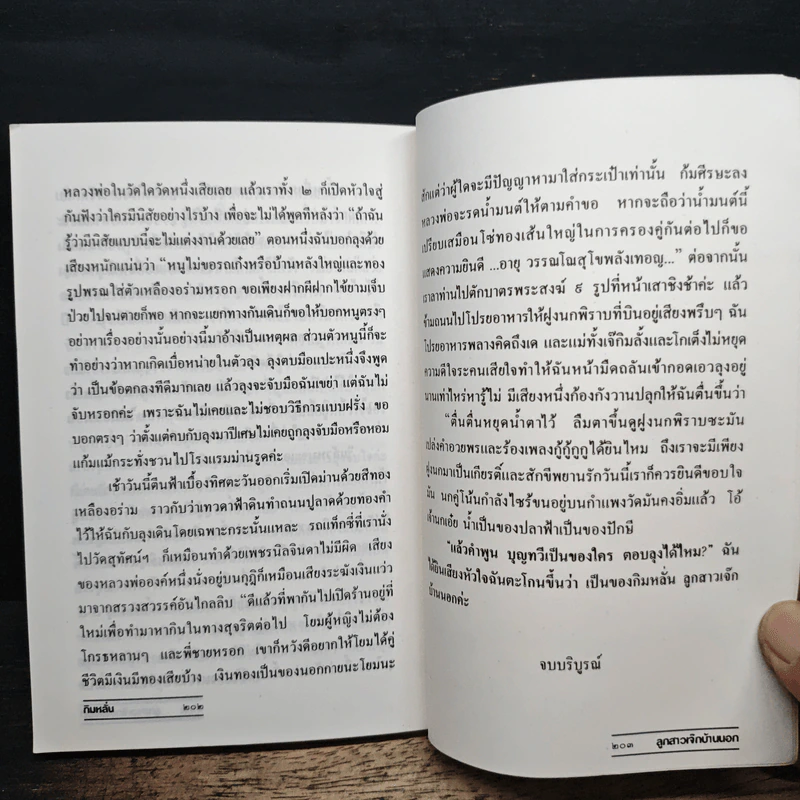 หลวงพ่อในวัดใดวัดหนึ่งเสียเลย แล้วเราทั้ง ๒ ก็เปิดหัวใจสู่
กันฟังว่าใครมีนิสัยอย่างไรบ้าง เพื่อจะไม่ได้พูดทีหลังว่า “ถ้าฉัน
รู้ว่ามีนิสัยแบบนี้จะไม่แต่งงานด้วยเลย” ตอนหนึ่งฉันบอกลุงด้วย
เสียงหนักแน่นว่า “หนูไม่ขอรถเก๋งหรือบ้านหลังใหญ่และทอง
รูปพรรณใส่ตัวเหลืองอร่ามหรอก ขอเพียงฝากผีฝากไข้ยามเจ็บ
ป่วยไปจนตายก็พอ หากจะแยกทางกันเดินก็ขอให้บอกหนูตรงๆ
อย่าหาเรื่องอย่างนั้นอย่างนี้มาอ้างเป็นเหตุผล ส่วนตัวหนูนี้ก็จะ
ทำอย่างว่าหากเกิดเบื่อหน่ายในตัวลุง ลุงตบมือแปะหนึ่งจึงพูด
ว่า เป็นข้อตกลงที่ดีมากเลย แล้วลุงจะจับมือฉันเขย่า แต่ฉันไม่
จับหรอกค่ะ เพราะฉันไม่เคยและไม่ชอบวิธีการแบบฝรั่ง ขอ
บอกตรงๆ ว่าตั้งแต่คบกับลุงมาปีเศษไม่เคยถูกลุงจับมือหรือหอม
แก้มแม้กระทั่งชวนไปโรงแรมม่านรูดค่ะ
เช้าวันนี้ตีนฟ้าเบื้องทิศตะวันออกเริ่มเปิดม่านด้วยสีทอง
เหลืองอร่าม ราวกับว่าเทวดาฟ้าดินทำถนนปูลาดด้วยทองคำ
ไว้ให้ฉันกับลุงเดินโดยเฉพาะกระนั้นแหละ รถแท็กซี่ที่เรานั่ง
ไปวัดสุทัศน์ฯ ก็เหมือนทำด้วยเพชรนิลจินดาไม่มีผิด เสียง
ของหลวงพ่อองค์หนึ่งนั่งอยู่บนกุฏิก็เหมือนเสียงระฆังเงินแว่ว
มาจากสรวงสวรรค์อันไกลลิบ “ดีแล้วที่พากันไปเปิดร้านอยู่ที่
ใหม่เพื่อทำมาหากินในทางสุจริตต่อไป โยมผู้หญิงไม่ต้อง
โกรธหลานๆ และพี่ชายหรอก เขาก็หวังดีอยากให้โยมได้คู่
ชีวิตมีเงินมีทองเสียบ้าง เงินทองเป็นของนอกกายนะโยมนะ
กิมหลั่น ๒๐๒
สักแต่ว่าผู้ใดจะมีปัญญาหามาใส่กระเป๋าเท่านั้น ก้มศีรษะลง
หลวงพ่อจะรดน้ำมนต์ให้ตามคำขอ หากจะถือว่าน้ำมนต์นี้
เปรียบเสมือนโซ่ทองเส้นใหญ่ในการครองคู่กันต่อไปก็ขอ
แสดงความยินดี ...อายุ วรรณโณสุโขพลังเทอญ...” ต่อจากนั้น
เราลาท่านไปตักบาตรพระสงฆ์ ๙ รูปที่หน้าเสาชิงช้าค่ะ แล้ว
ข้ามถนนไปโปรยอาหารให้ฝูงนกพิราบที่บินอยู่เสียงพรึบๆ ฉัน
โปรยอาหารพลางคิดถึงเด และแม่ทั้งเจ๊กิมลั้งและโกเต็งไม่หยุด
ความดีใจระคนเสียใจทำให้ฉันหน้ามืดถลันเข้ากอดเอวลุงอยู่
นานเท่าไหร่หารู้ไม่ มีเสียงหนึ่งก้องกังวานปลุกให้ฉันตื่นขึ้นว่า
“ตื่นตื่นหยุดน้ำตาไว้ ลืมตาขึ้นดูฝูงนกพิราบซะมัน
เปล่งคำอวยพรและร้องเพลงกู้กู้กูกูได้ยินไหม ถึงเราจะมีเพียง
ฝูงนกมาเป็นเกียรติ์และสักขีพยานรักวันนี้เราก็ควรยินดีขอบใจ
มัน นกคู่โน้นกำลังไซร้ขนอยู่บนกำแพงวัดมันคงอิ่มแล้ว โอ้
เจ้านกเอ๋ย น้ำเป็นของปลาฟ้าเป็นของปักษี
“แล้วคำพูน บุญทวีเป็นของใคร ตอบลุงได้ไหม?” ฉัน
ได้ยินเสียงหัวใจฉันตะโกนขึ้นว่า เป็นของกิมหลั่น ลูกสาวเจ๊ก
บ้านนอกค่ะ
จบบริบูรณ์
๒๐๓ ลูกสาวเจ๊กบ้านนอก